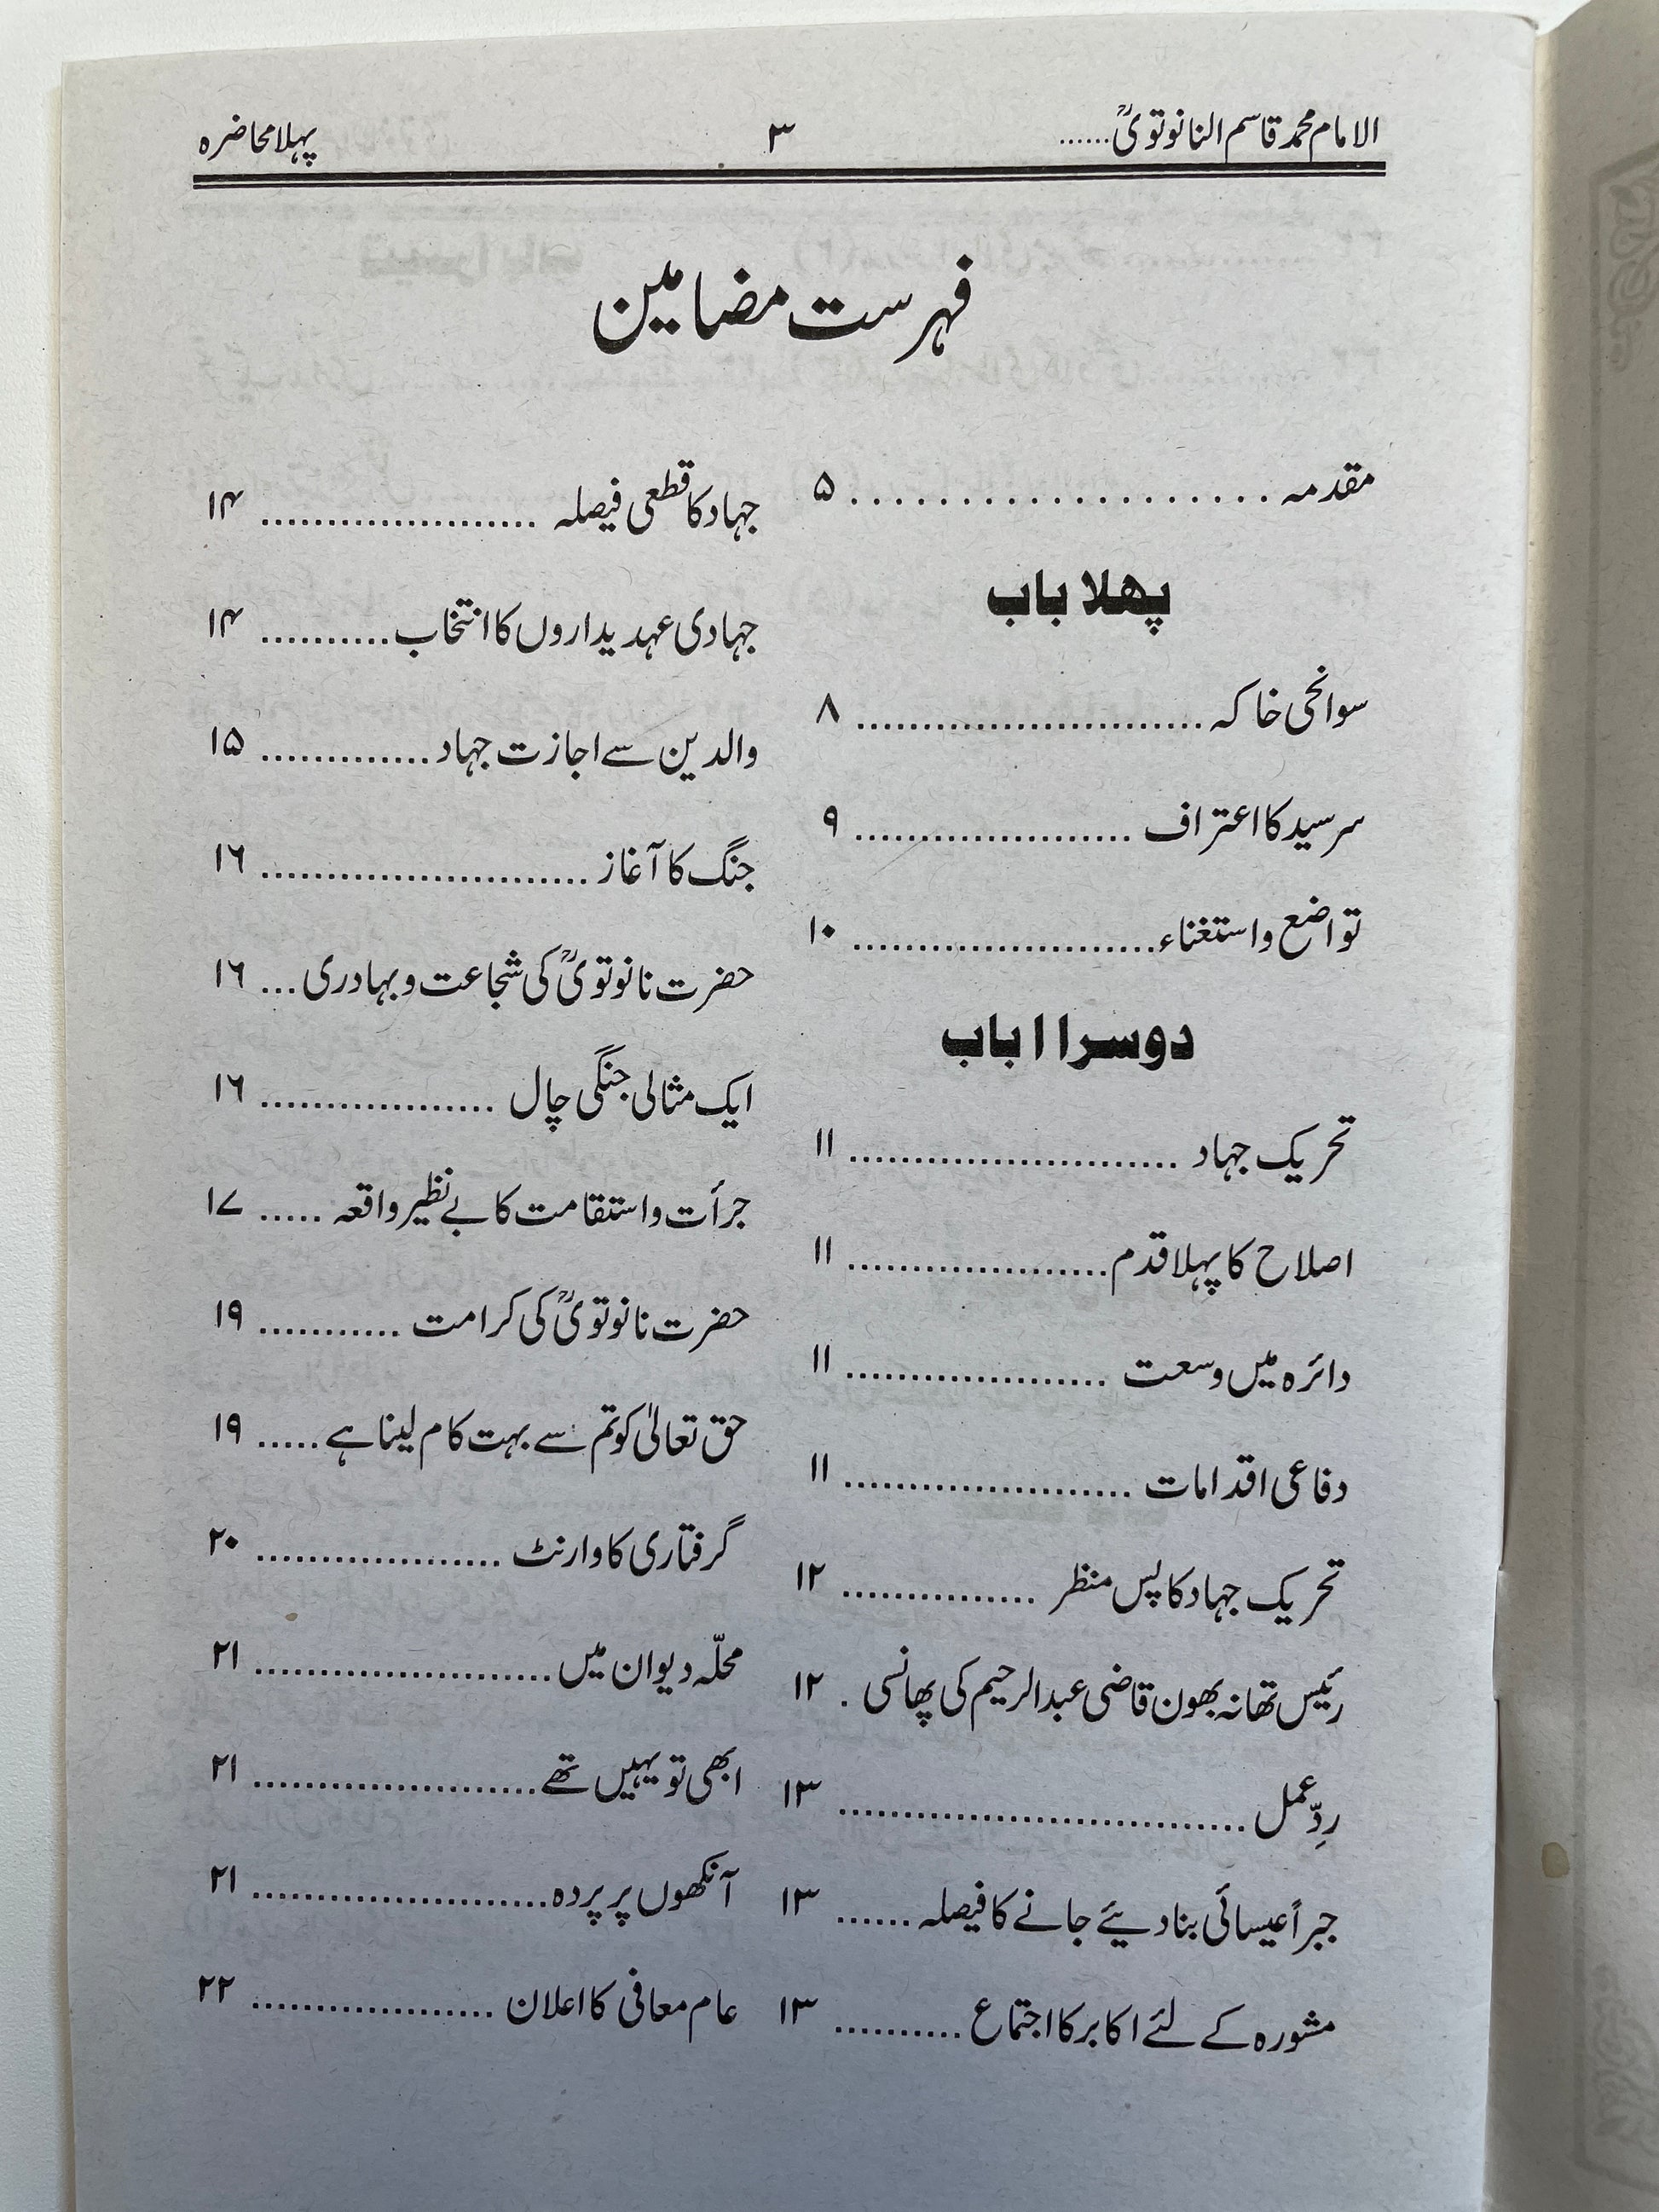 الامام محمد قاسم النانوتویؒ...... ۳ پہلا محاضرہ
فہرست مضامین
مقدمہ .................... ۵
پھلا باب
سوانحی خاکہ .......................... ۸
سرسید کا اعتراف ..................... ۹
تواضع و استغناء....................... ۱۰
دوسرا ا باب
تحریک جہاد ......................... ۱۱
اصلاح کا پہلا قدم.................... ۱۱
دائرہ میں وسعت .................... ۱۱
دفاعی اقدامات ...................... ۱۱
تحریک جہاد کا پس منظر ............... ۱۲
رئیس تھانہ بھون قاضی عبدالرحیم کی پھانسی . ۱۲
ردِّ عمل ............................... ۱۳
جبراً عیسائی بنا دیئے جانے کا فیصلہ ...... ۱۳
مشورہ کے لئے اکابر کا اجتماع .......... ۱۳
جہاد کا قطعی فیصلہ ..................... ۱۴
جہادی عہدیداروں کا انتخاب .......... ۱۴
والدین سے اجازت جہاد ............. ۱۵
جنگ کا آغاز ......................... ۱۶
حضرت نانوتویؒ کی شجاعت و بہادری ... ۱۶
ایک مثالی جنگی چال .................. ۱۶
جرأت و استقامت کا بے نظیر واقعہ ..... ۱۷
حضرت نانوتویؒ کی کرامت ........... ۱۹
حق تعالیٰ کو تم سے بہت کام لینا ہے ..... ۱۹
گرفتاری کا وارنٹ ................... ۲۰
محلّہ دیوان میں ....................... ۲۱
ابھی تو یہیں تھے...................... ۲۱
آنکھوں پر پردہ....................... ۲۱
عام معافی کا اعلان ................... ۲۲